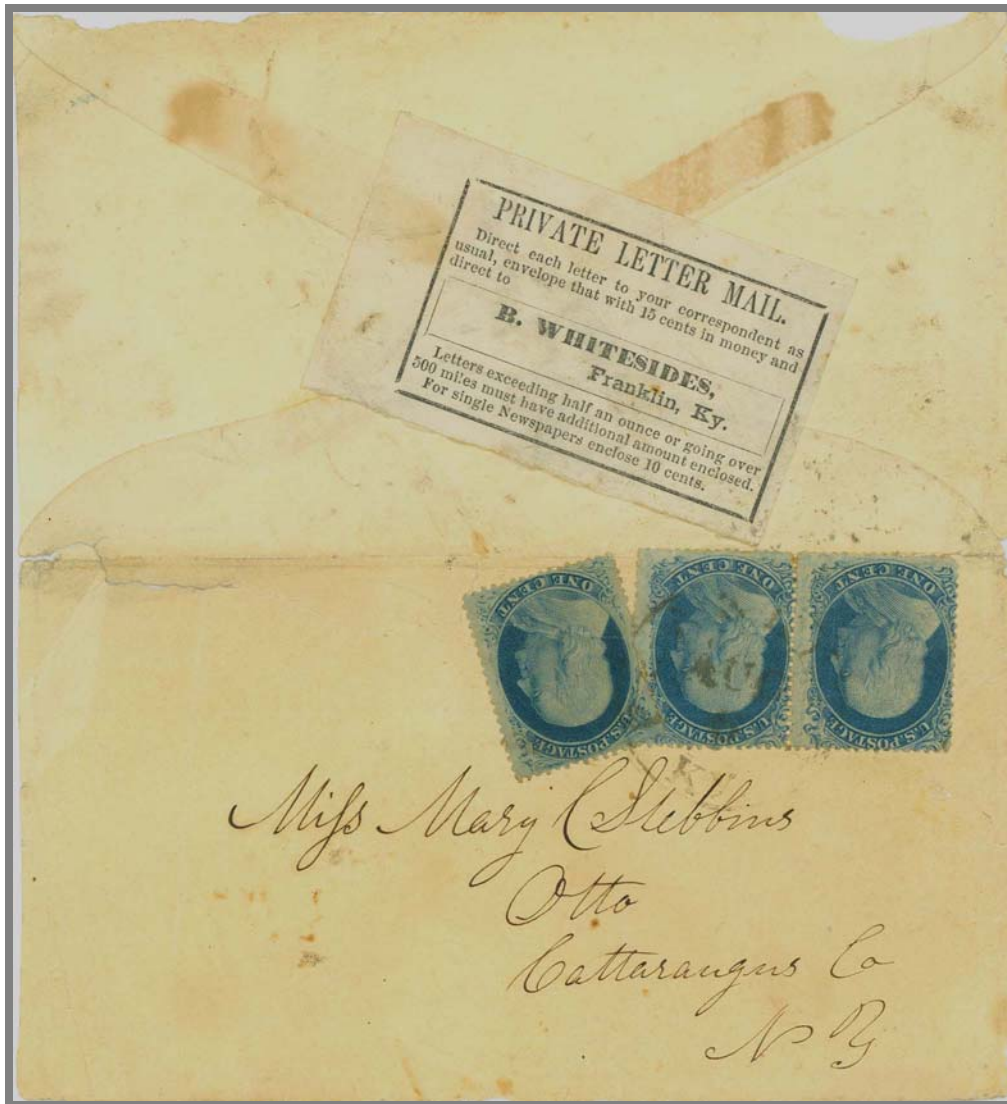 PRIVATE LETTER MAIL.
Direct each letter to your correspondent as
usual, envelope that with 15 cents in money and
direct to
B. WHITESIDES,
Franklin, Ky.
Letters exceeding half an ounce or going over
500 miles must have additional amount enclosed.
For single Newspapers enclose 10 cents.
ONE CENT
U.S. POSTAGE
ONE CENT
U.S. POSTAGE
ONE CENT
U.S. POSTAGE
AU
KY
Miss Mary C Stebbins
Otto
Cattaraugus Co
N Y